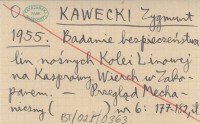 KAWECKI Zygmunt
1955. Badanie bezpieczeństwa
lin nośnych Kolei Linowej
na Kasprowy Wierch w Zako-
panem. — Przegląd Mecha-
niczny ( ) nr 6: 177-182, il.
BI/02P/0363